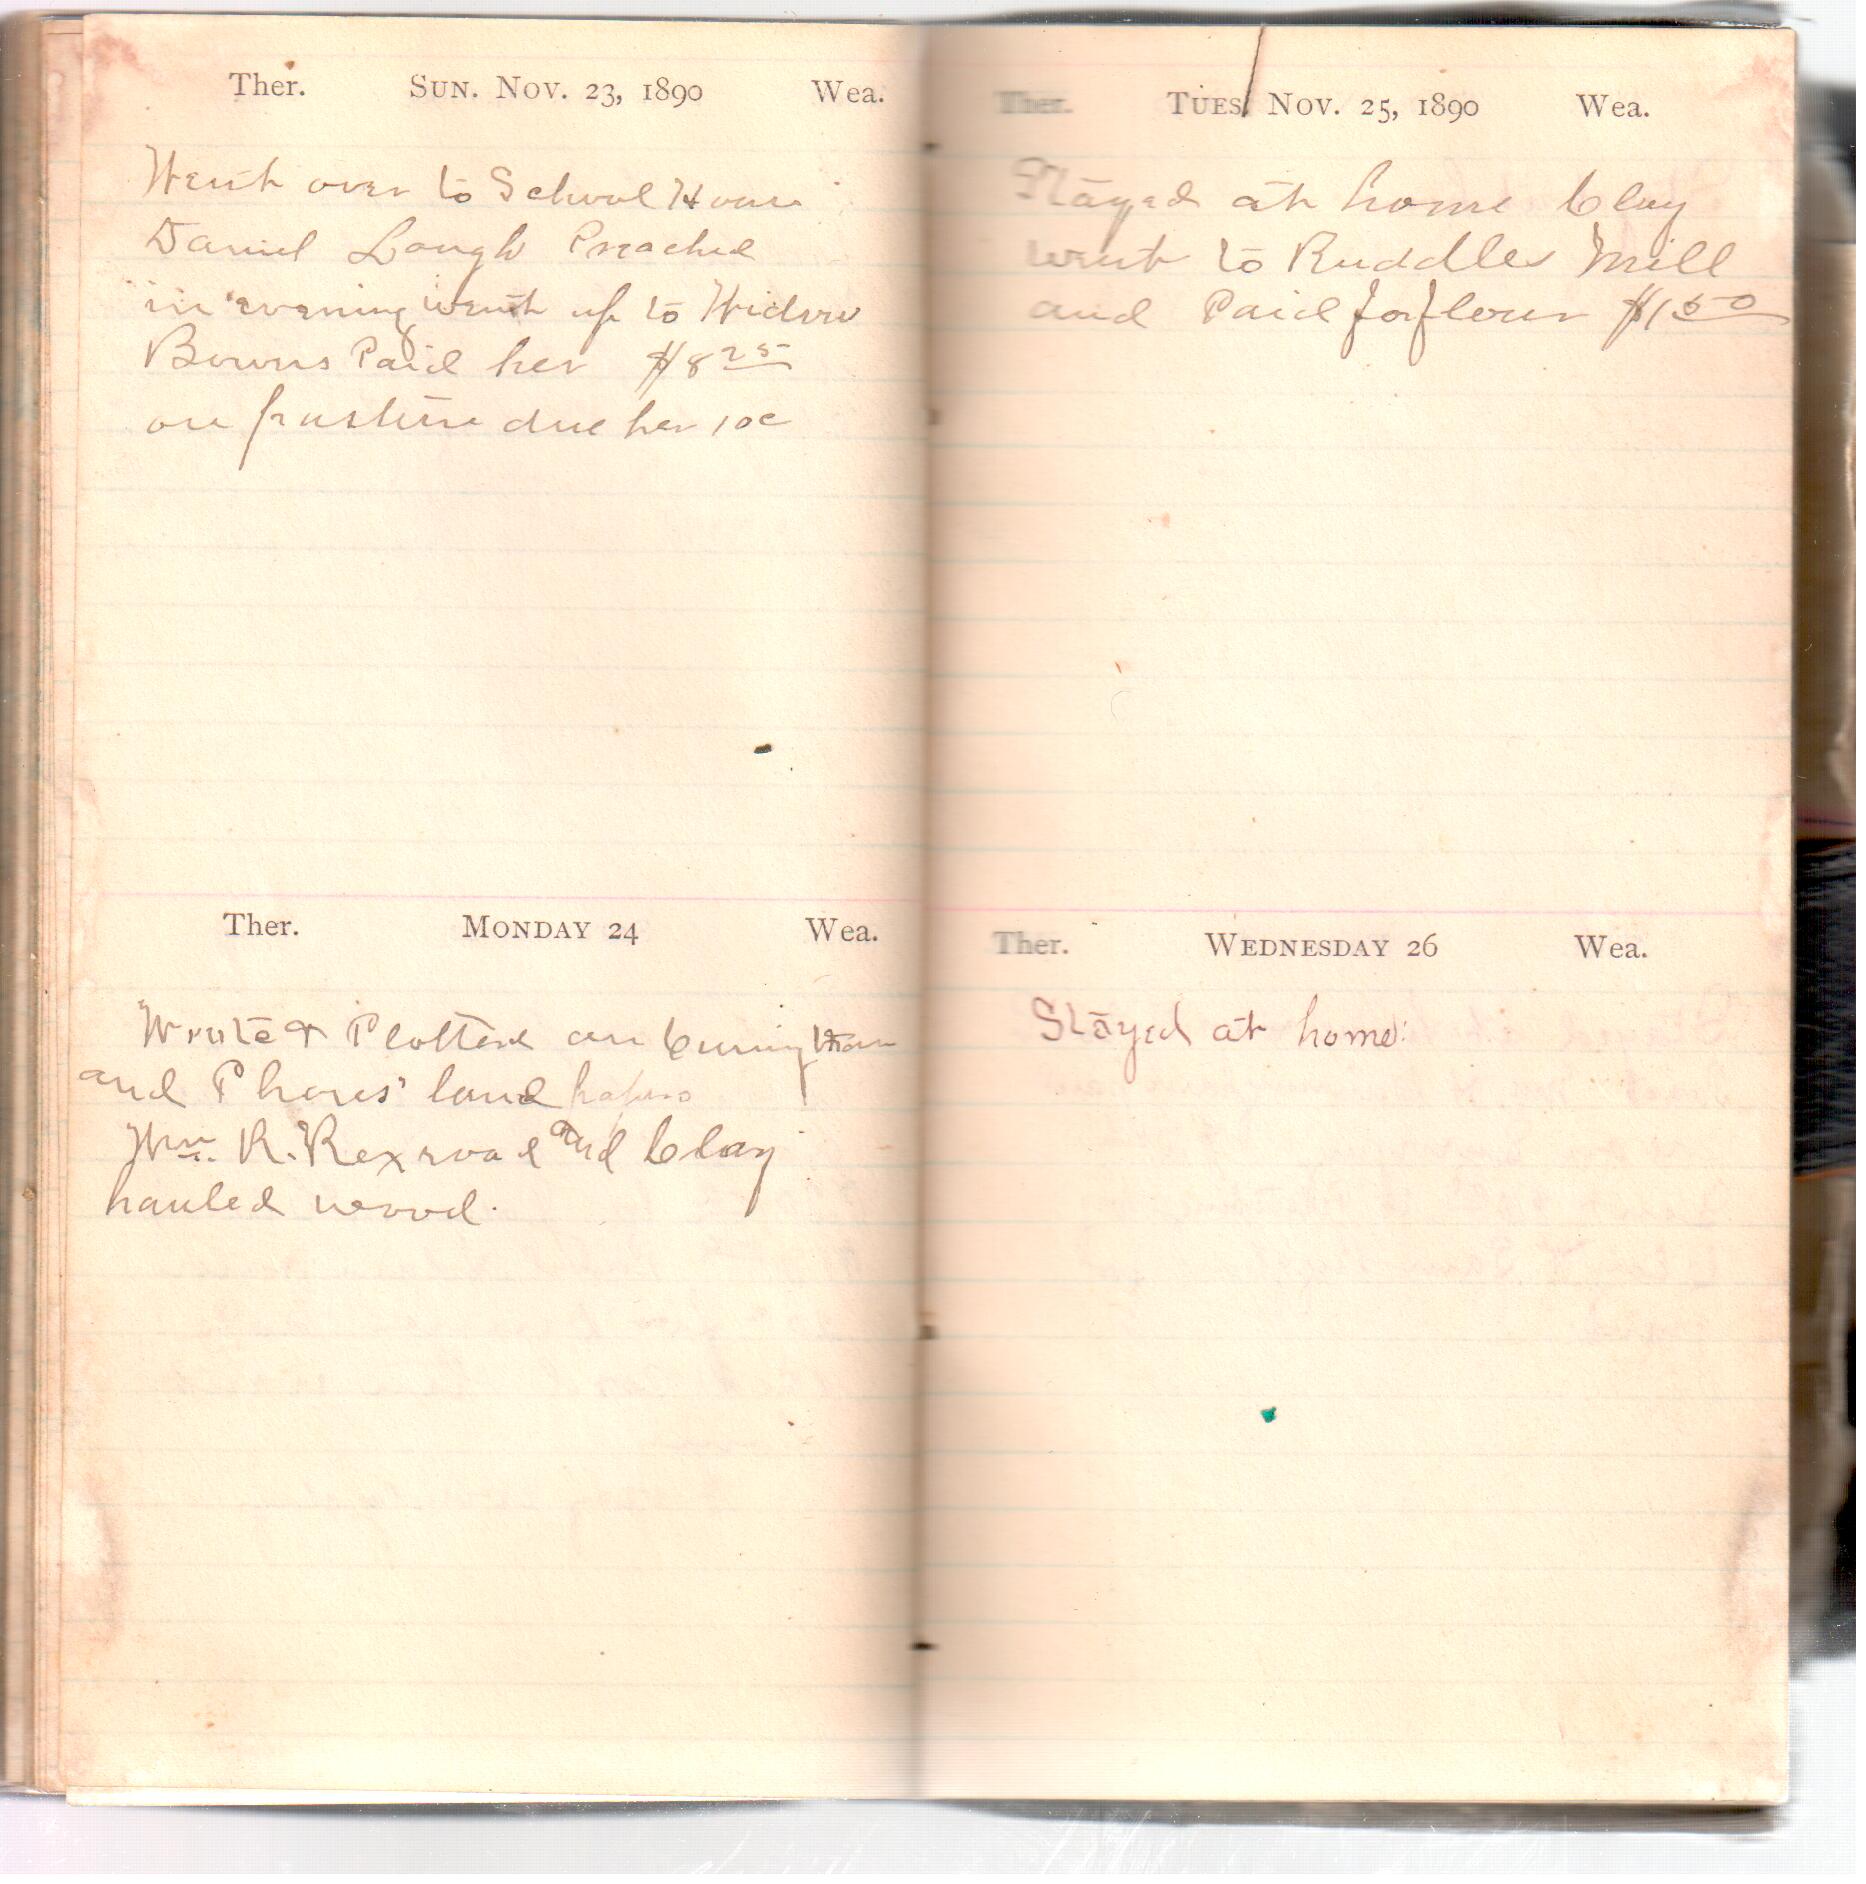 Ther. SUN. NOV. 23, 1890 Wea.
Went over to School House
Daniel Lough Preached
in evening went up to Widow
Bowers Paid her $8 25
on pasture due her 10c
Ther. MONDAY 24 Wea.
Wrote & Plotted on Cunningham
and Phares' land papers
Wm. R. Rexroad and Clay
hauled wood.
Ther. TUES. NOV. 25, 1890 Wea.
Stayed at home Clay
went to Ruddles Mill
and Paid for flour $1 50
Ther. WEDNESDAY 26 Wea.
Stayed at home.